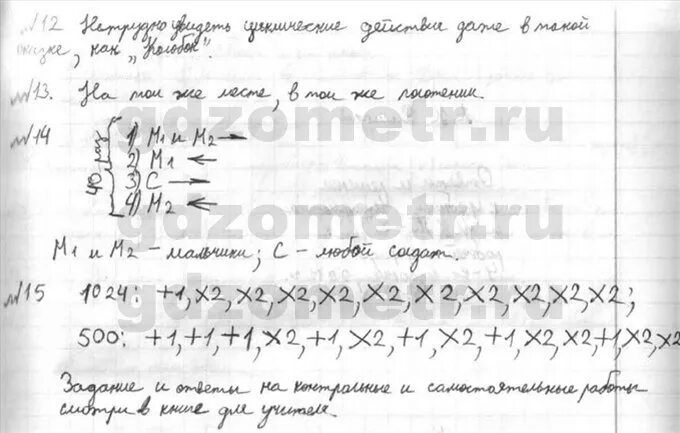 №12 Нетрудно увидеть циклические действие даже в такой
сказке, как „Колобок".
№13. На том же месте, в том же положении.
№14
40 раз
1) М1 и М2 →
2) М1 ←
3) С →
4) М2 ←
М1 и М2 – мальчики; С – любой солдат.
№15 1024: +1, ×2, ×2, ×2, ×2, ×2, ×2, ×2, ×2, ×2, ×2;
500: +1, +1, +1, ×2, +1, ×2, +1, ×2, +1, ×2, ×2, +1, ×2, ×2
Задание и ответы на контрольные и самостоятельные работы
смотри в книге для учителя.
gdzometr.ru
gdzometr.ru
gdzometr.ru